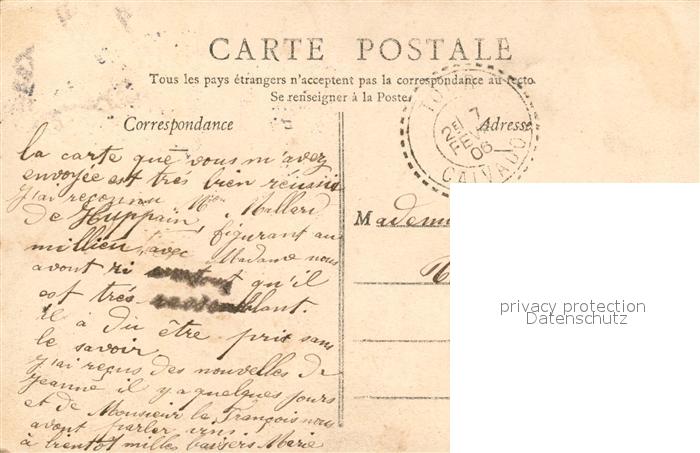 CARTE POSTALE
Tous les pays étrangers n'acceptent pas la correspondance au recto
Se renseigner à la Poste
Correspondance
Adresse
7
FEV
06
CALVADOS
la carte que vous m'avez
envoyée est trés bien réussie
j'ai reconnu Mon Mallard
de Huppain, figurant au
millieu, avec Madame nous
avont ri surtout qu'il
est trés ressemblant.
il à du être prit sans
le savoir.
j'ai reçus des nouvelles de
Jeanne il y a quelques jours
et de Monsieur le François nous
avont parler
à bientot milles baisers Marie
Madem
privacy protection
Datenschutz